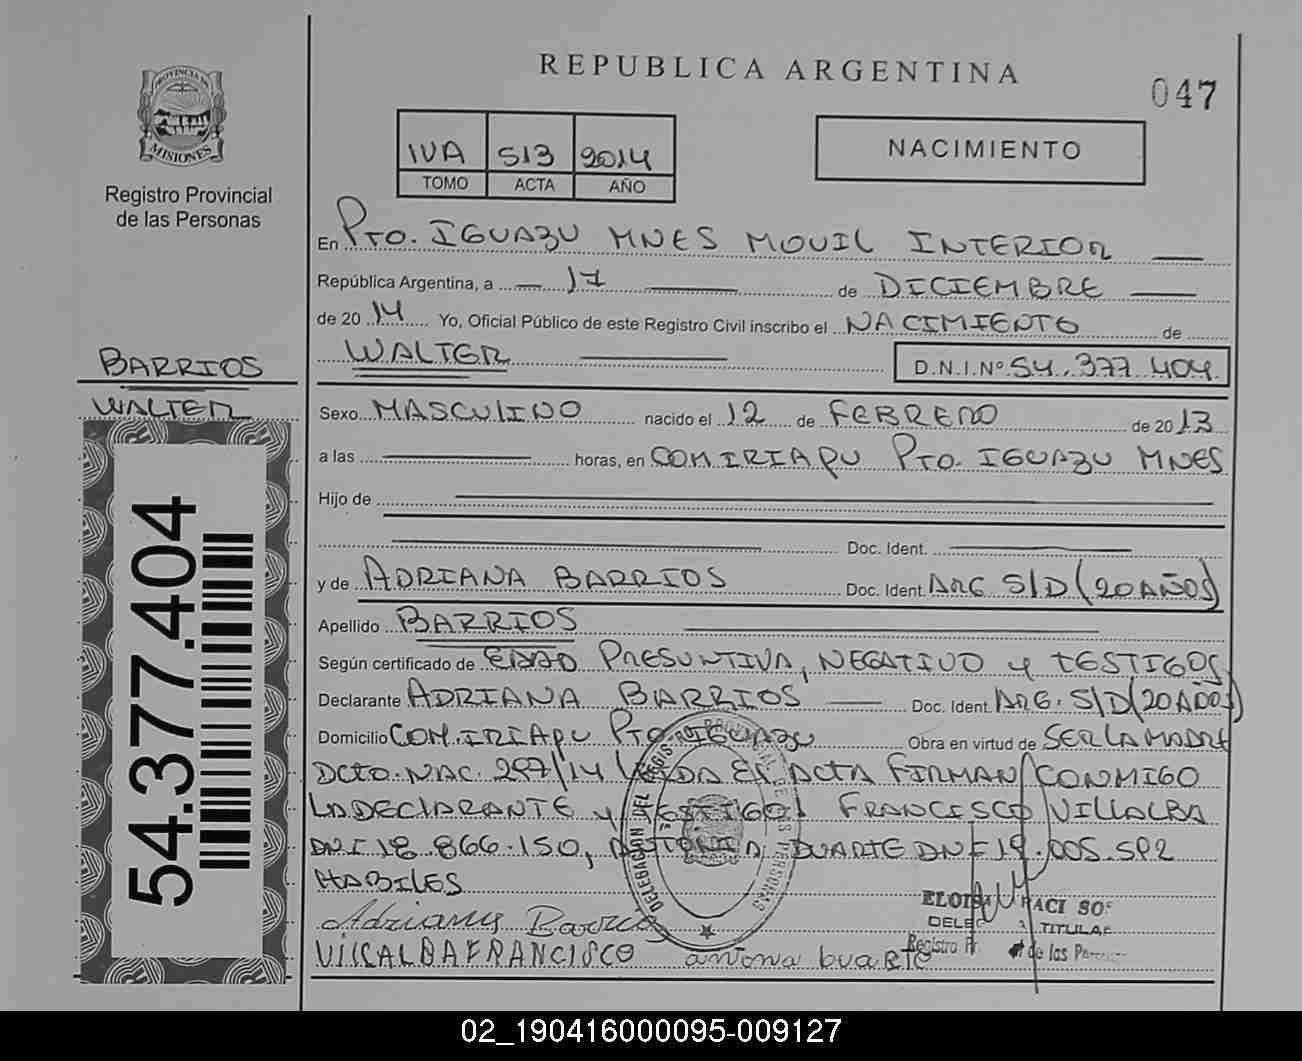 REPUBLICA ARGENTINA
047
PROVINCIA DE
MISIONES
Registro Provincial
de las Personas
IVA 513 2014
TOMO ACTA AÑO
NACIMIENTO
En PTO. IGUAZU MNES MOVIL INTERIOR
República Argentina, a 17 de DICIEMBRE
de 2014 Yo, Oficial Público de este Registro Civil inscribo el NACIMIENTO de
WALTER D.N.I.Nº 54.377.404
BARRIOS
WALTER
54.377.404
Sexo MASCULINO nacido el 12 de FEBRERO de 2013
a las horas, en COM.IRIAPU PTO. IGUAZU MNES
Hijo de
Doc. Ident.
y de ADRIANA BARRIOS Doc. Ident. ARG S/D (20 AÑOS)
Apellido BARRIOS
Según certificado de EDAD PRESUNTIVA, NEGATIVO y TESTIGOS
Declarante ADRIANA BARRIOS Doc. Ident. ARG. S/D (20 AÑOS)
Domicilio COM.IRIAPU PTO IGUAZU Obra en virtud de SER LA MADRE
DCTO. NAC. 297/14 LEIDA EL ACTA FIRMAN CONMIGO
LA DECLARANTE y TESTIGOS FRANCISCO VILLALBA
DNI 18.866.150, ANTONIA DUARTE DNI 19.005.592
HABILES
Adriana Barrios
VILLALBA FRANCISCO antonia Duarte
DELEGACION DEL REGISTRO PROVINCIAL DE LAS PERSONAS
TITULAR
Registro de las
02_190416000095-009127